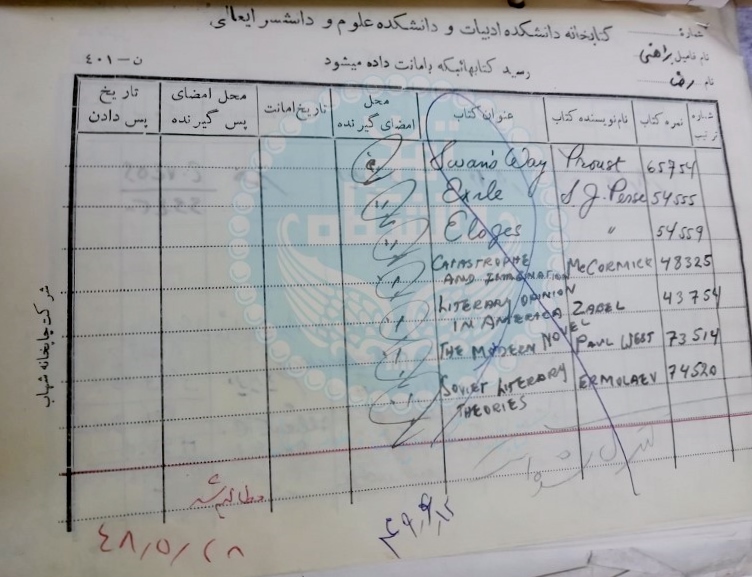 شماره:
کتابخانه دانشکده ادبیات و دانشکده علوم و دانشسرایعالی
نام فامیل براهنی
نام رضا
رسید کتابهائیکه بامانت داده میشود
ن-۴۰۱
شماره ترتیب نمره کتاب نام نویسنده کتاب عنوان کتاب محل امضای گیرنده تاریخ امانت محل امضای پس گیرنده تاریخ پس دادن
65754 Proust Swan's Way
54555 S J. Perse Exile
54559 " Eloges
48325 McCORMICK CATASTROPHE AND IMAGINATION
43754 ZABEL LITERARY OPINION IN AMERICA
73514 PAUL WEST THE MODERN NOVEL
74520 ERMOLAEV SOVIET LITERARY THEORIES
کنترل
مطالبه شد
۴۸/۵/۲۸
شرکت چاپخانه شهاب